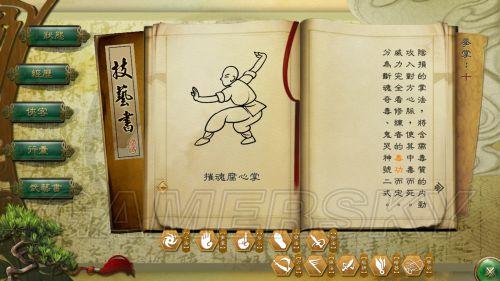 狀態
經歷
俠客
行囊
武藝書
技藝書
摧魂腐心掌
拳掌：十
陰損的掌法，將含毒質的內勁
攻入對方心脈，使其中毒而死。
威力完全看修練者的毒功而定。
分為斷魂奇毒、鬼哭神號二式。
GAMERSKY